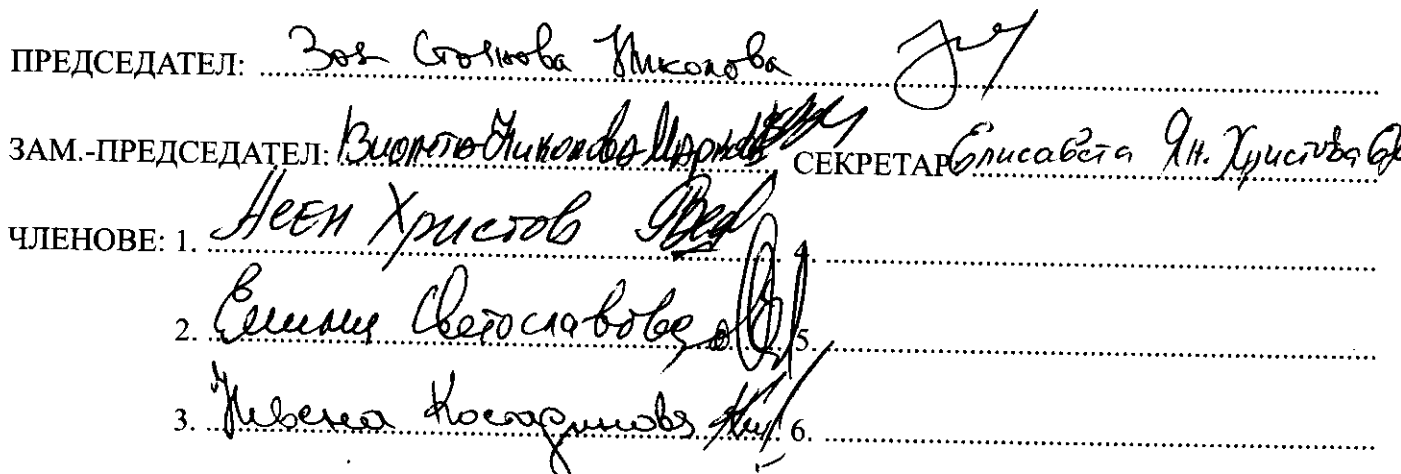 ПРЕДСЕДАТЕЛ: Зоя Стоянова Николова
ЗАМ.-ПРЕДСЕДАТЕЛ: Виолета Николова СЕКРЕТАР Елисавета Ян. Христова
ЧЛЕНОВЕ: 1. Асен Христов 4.
2. Емилия Светославова 5.
3. Нивена Костадинова 6.